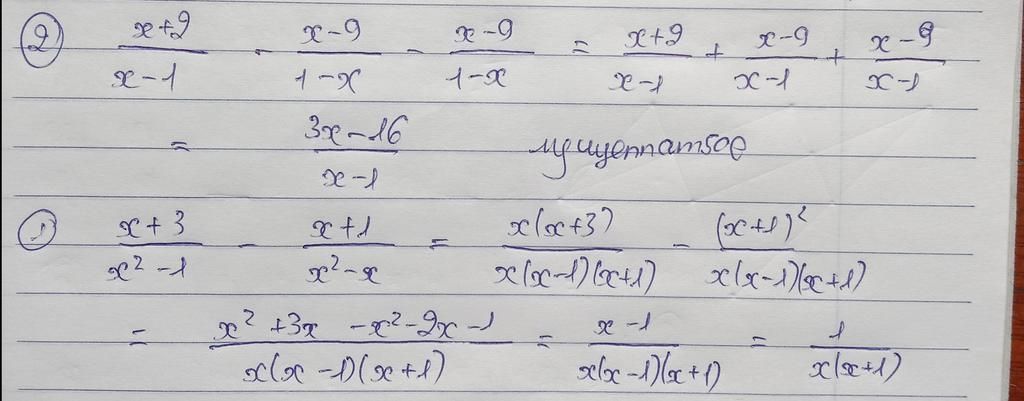 ② \frac{x+2}{x-1} - \frac{x-9}{1-x} - \frac{x-9}{1-x} = \frac{x+2}{x-1} + \frac{x-9}{x-1} + \frac{x-9}{x-1}
= \frac{3x-16}{x-1}
① \frac{x+3}{x^2-1} - \frac{x+1}{x^2-x} = \frac{x(x+3)}{x(x-1)(x+1)} - \frac{(x+1)^2}{x(x-1)(x+1)}
= \frac{x^2+3x-x^2-2x-1}{x(x-1)(x+1)} = \frac{x-1}{x(x-1)(x+1)} = \frac{1}{x(x+1)}